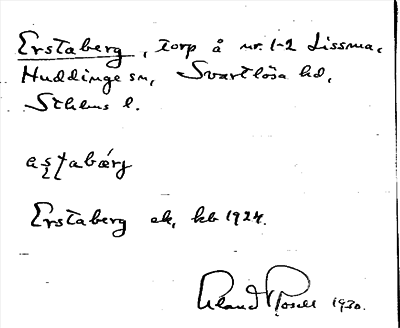 Erstaberg, torp å nr. 1-2 Lissma,
Huddinge sn, Svartlösa hd,
Sthlms l.
aʂʈabærj
Erstaberg ek, kb 1924.
1930.